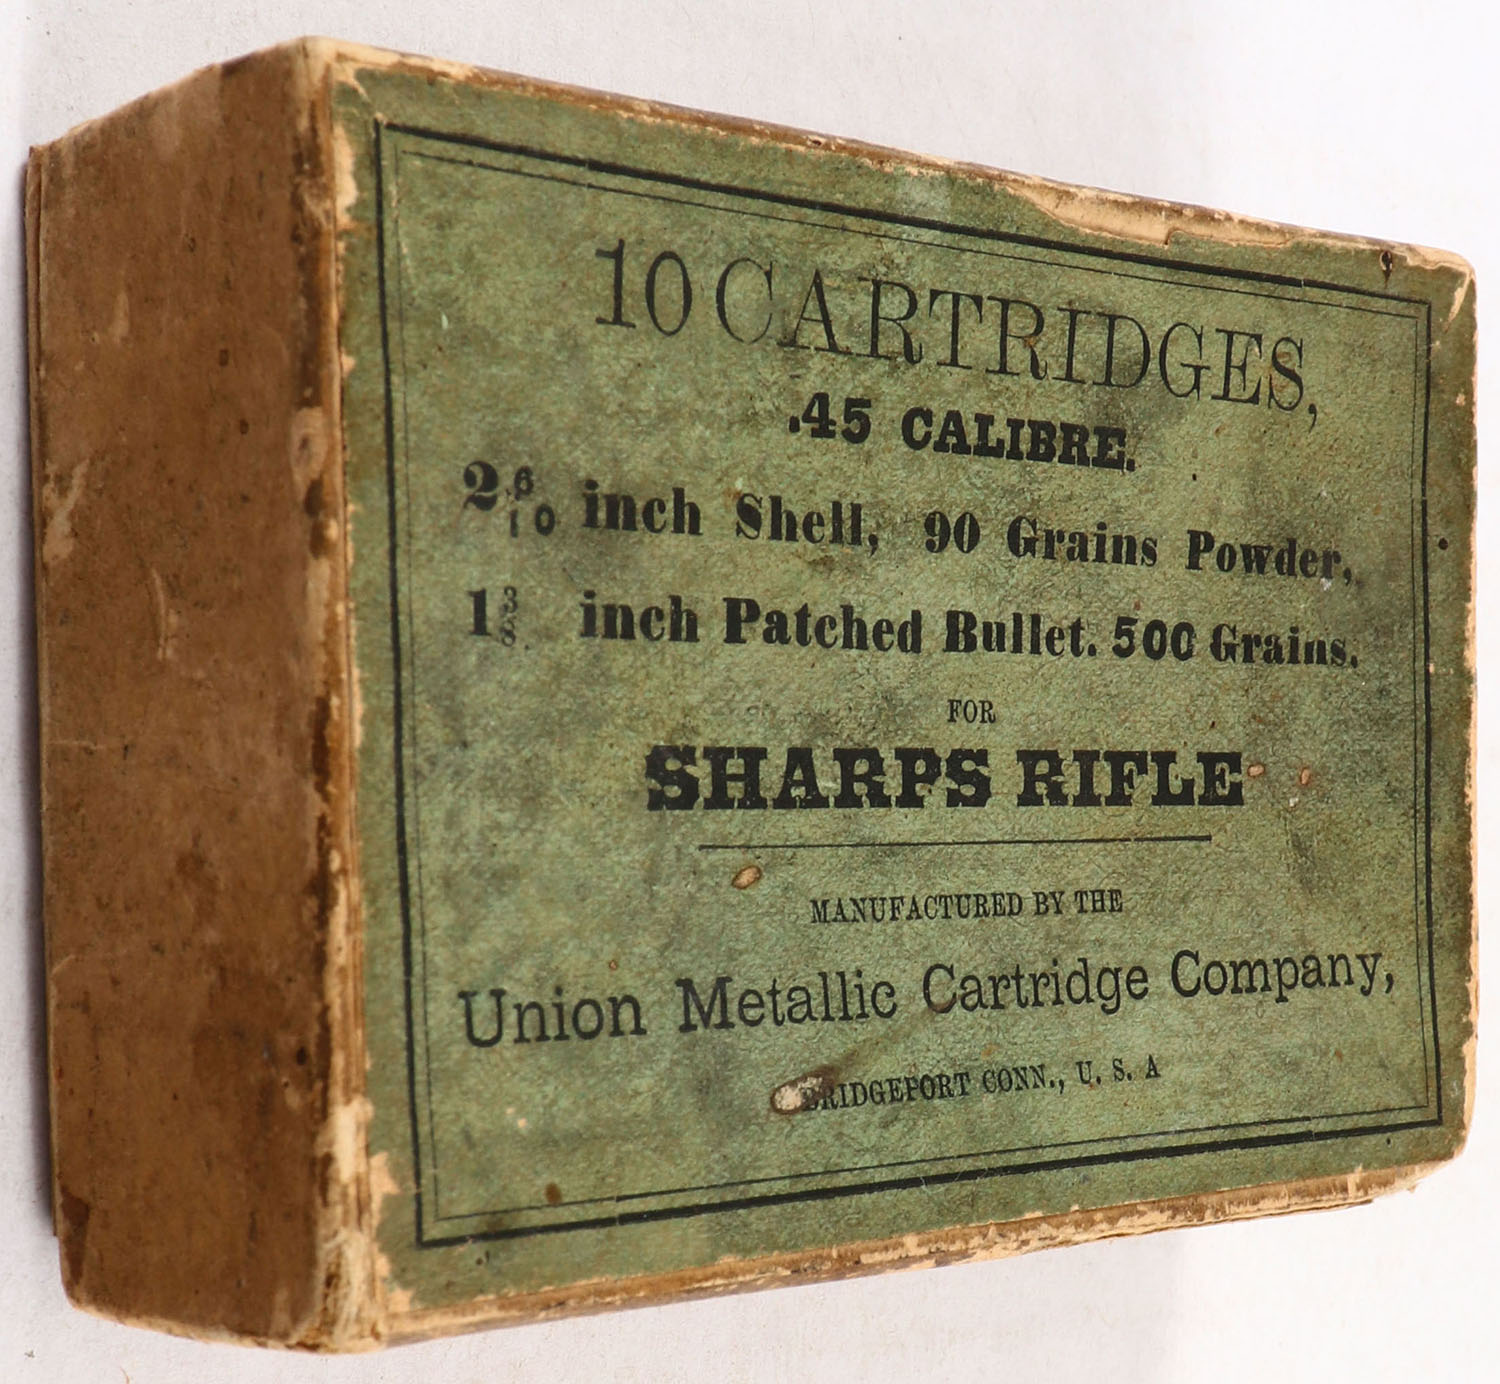 10 CARTRIDGES,
.45 CALIBRE.
2 6/10 inch Shell, 90 Grains Powder,
1 3/8 inch Patched Bullet. 500 Grains.
FOR
SHARPS RIFLE
MANUFACTURED BY THE
Union Metallic Cartridge Company,
BRIDGEPORT CONN., U. S. A